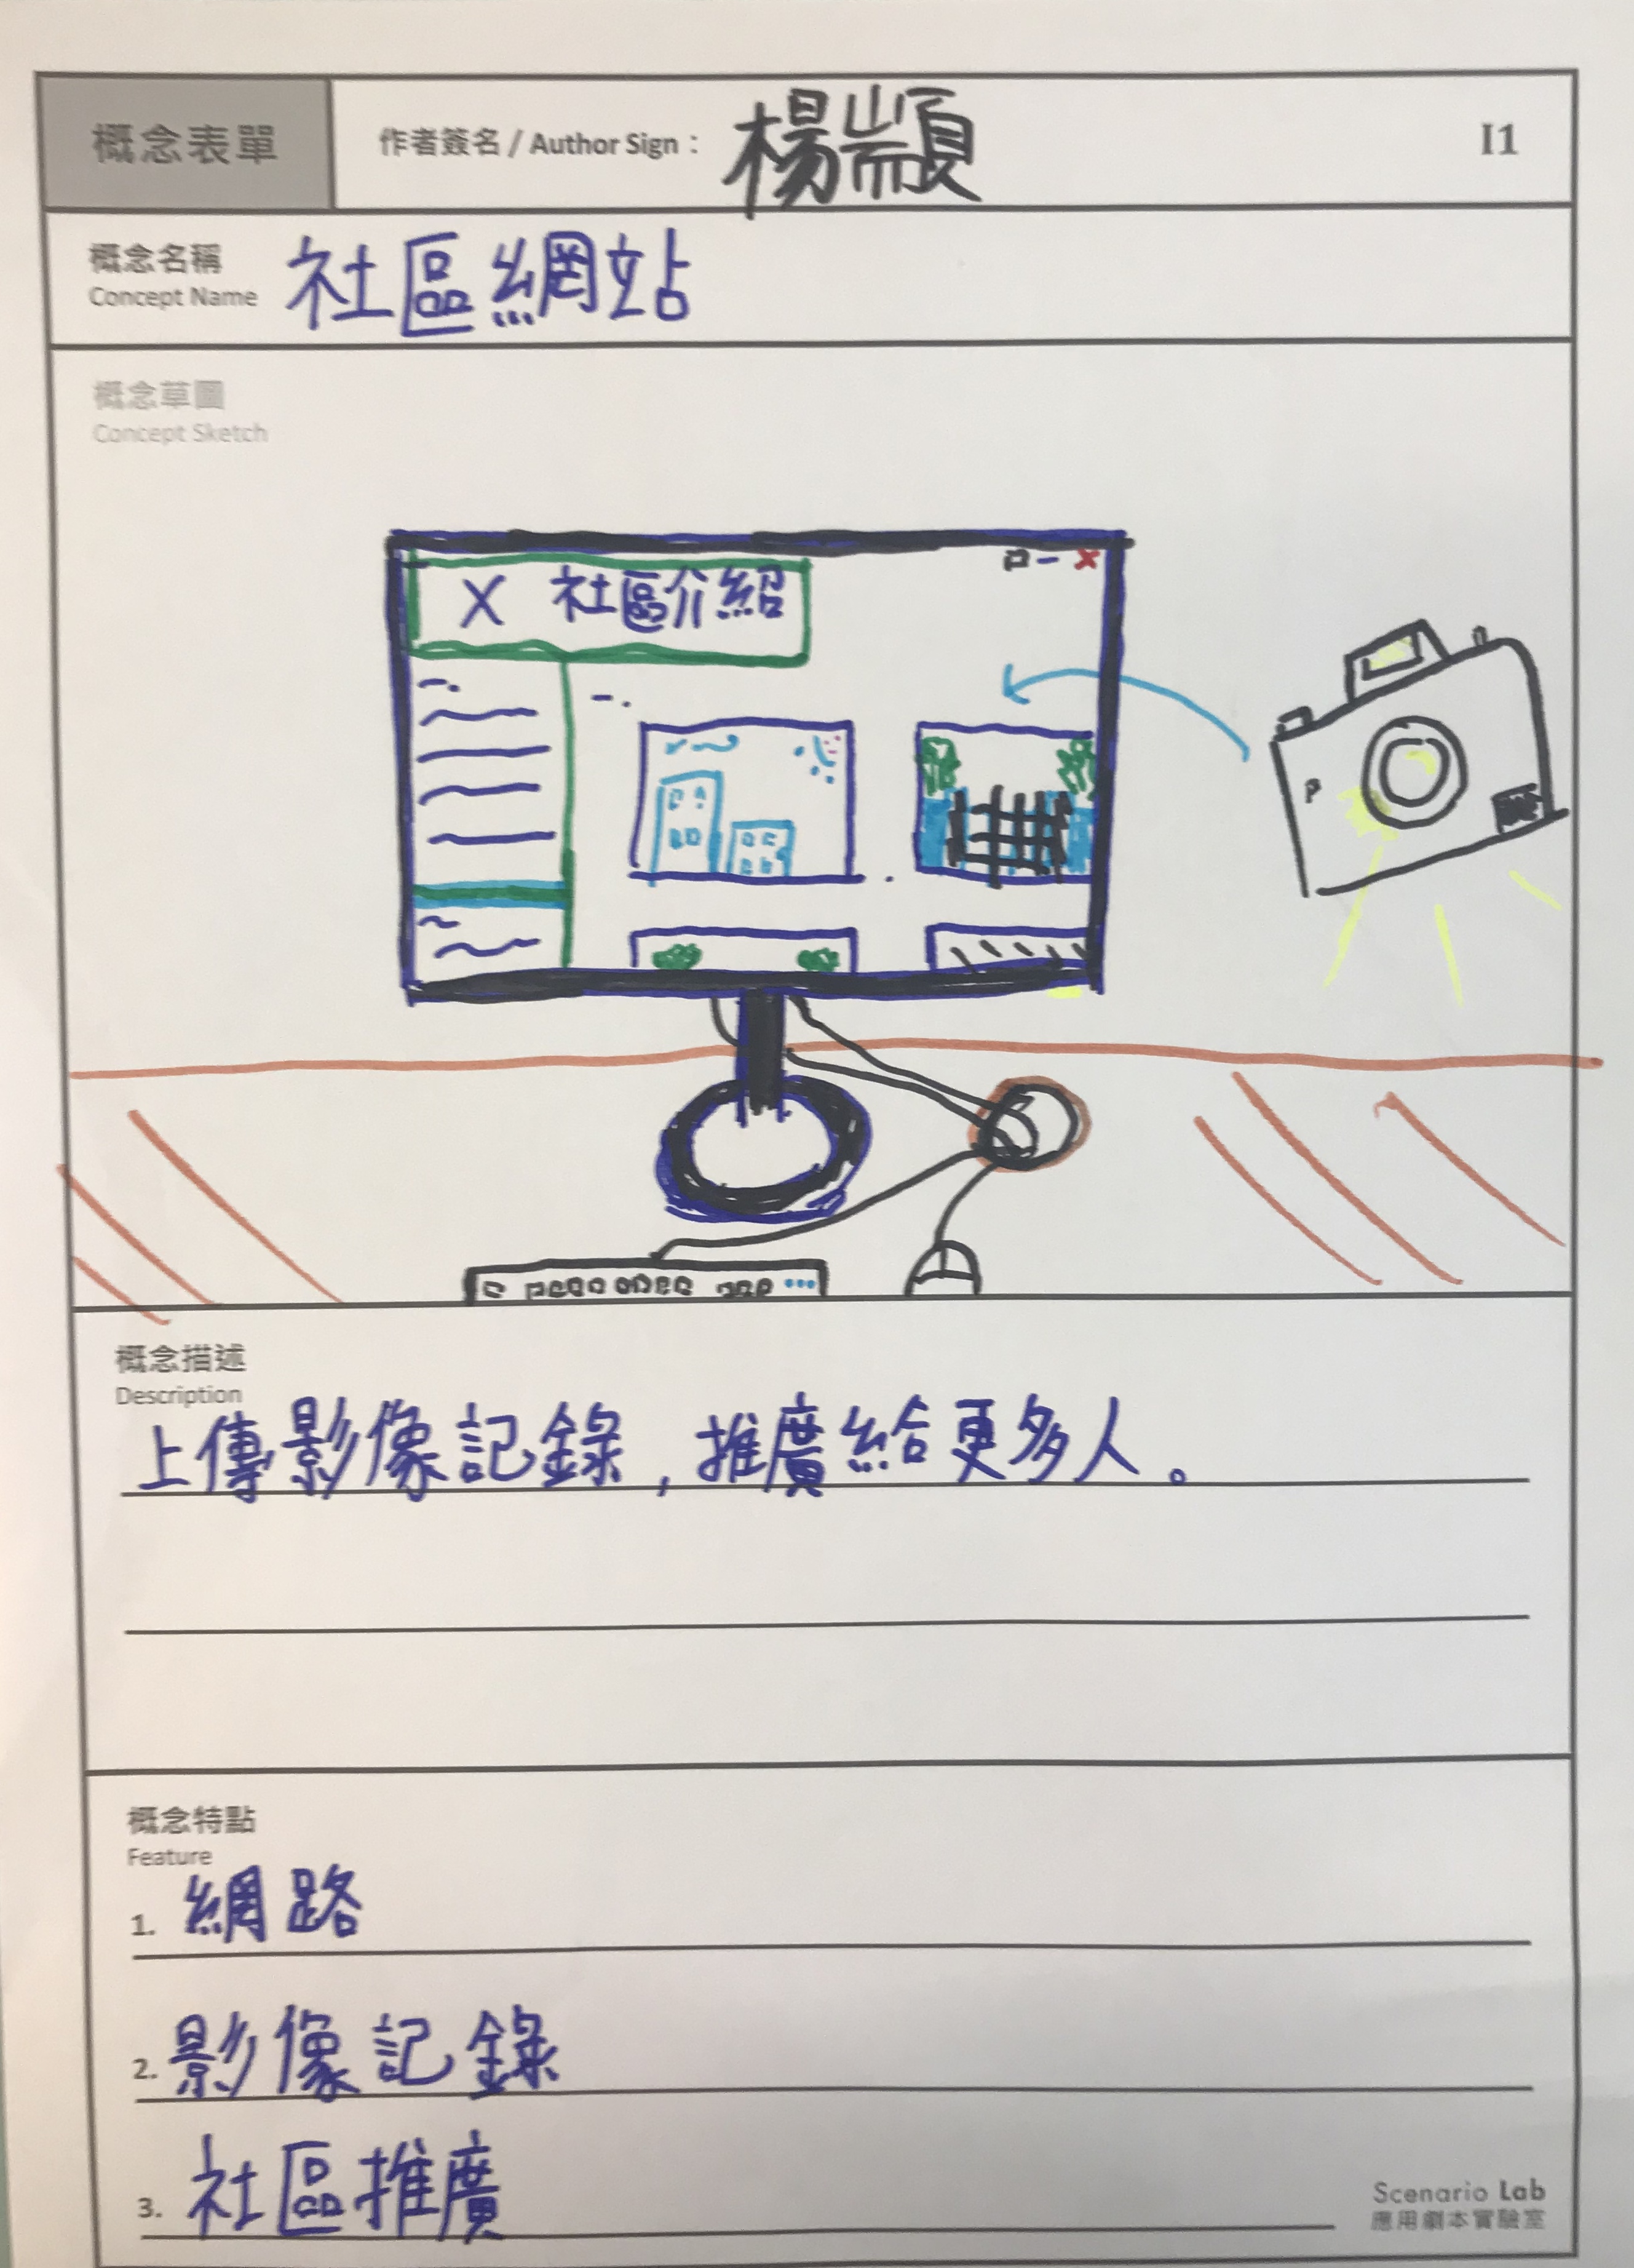 概念表單
作者簽名 / Author Sign： 楊顓
I1
概念名稱 社區網站
Concept Name
概念草圖
Concept Sketch
X 社區介紹
概念描述
Description
上傳影像記錄，推廣給更多人。
概念特點
Feature
1. 網路
2. 影像記錄
3. 社區推廣
Scenario Lab
應用劇本實驗室